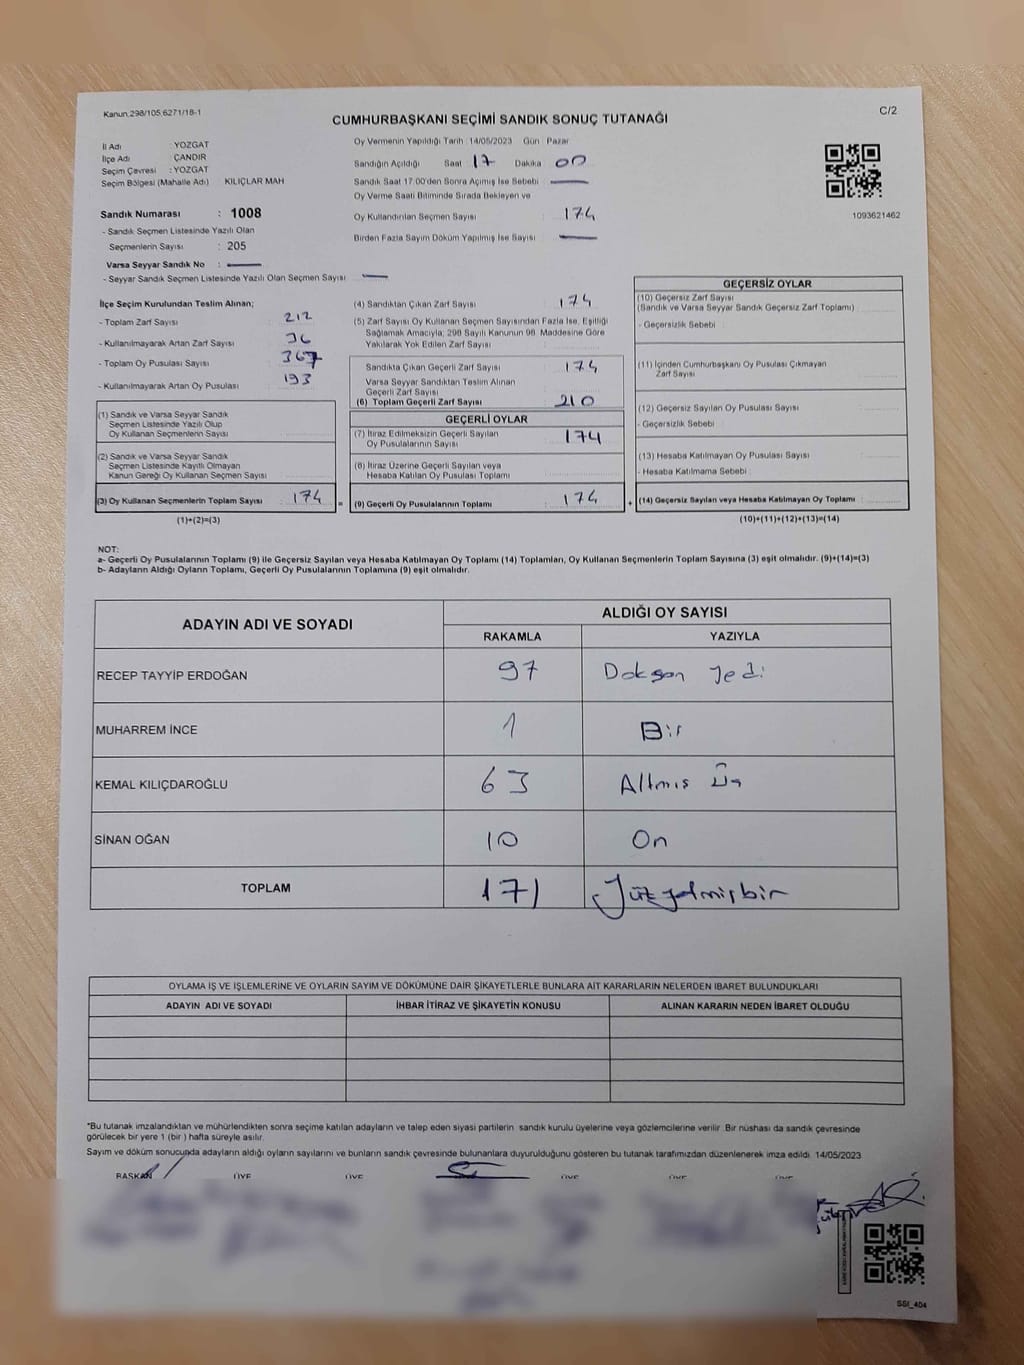 Kanun,298/105,6271/18-1
C/2
CUMHURBAŞKANI SEÇİMİ SANDIK SONUÇ TUTANAĞI
İl Adı : YOZGAT
İlçe Adı : ÇANDIR
Seçim Çevresi : YOZGAT
Seçim Bölgesi (Mahalle Adı) : KILIÇLAR MAH
Sandık Numarası : 1008
- Sandık Seçmen Listesinde Yazılı Olan
Seçmenlerin Sayısı : 205
Varsa Seyyar Sandık No :
- Seyyar Sandık Seçmen Listesinde Yazılı Olan Seçmen Sayısı :
Oy Vermenin Yapıldığı Tarih : 14/05/2023 Gün : Pazar
Sandığın Açıldığı Saat 17 Dakika 00
Sandık Saat 17:00'den Sonra Açımış İse Sebebi :
Oy Verme Saati Bitiminde Sırada Bekleyen ve
Oy Kullandırılan Seçmen Sayısı : 174
Birden Fazla Sayım Döküm Yapılmış İse Sayısı :
1093621462
İlçe Seçim Kurulundan Teslim Alınan;
- Toplam Zarf Sayısı : 212
- Kullanılmayarak Artan Zarf Sayısı : 36
- Toplam Oy Pusulası Sayısı : 367
- Kullanılmayarak Artan Oy Pusulası : 193
(1) Sandık ve Varsa Seyyar Sandık
Seçmen Listesinde Yazılı Olup
Oy Kullanan Seçmenlerin Sayısı :
(2) Sandık ve Varsa Seyyar Sandık
Seçmen Listesinde Kayıtlı Olmayan
Kanun Gereği Oy Kullanan Seçmen Sayısı :
(3) Oy Kullanan Seçmenlerin Toplam Sayısı : 174
(1)+(2)=(3)
(4) Sandıktan Çıkan Zarf Sayısı : 174
(5) Zarf Sayısı Oy Kullanan Seçmen Sayısından Fazla İse, Eşitliği
Sağlamak Amacıyla; 298 Sayılı Kanunun 98. Maddesine Göre
Yakılarak Yok Edilen Zarf Sayısı :
Sandıkta Çıkan Geçerli Zarf Sayısı : 174
Varsa Seyyar Sandıktan Teslim Alınan
Geçerli Zarf Sayısı :
(6) Toplam Geçerli Zarf Sayısı : 210
GEÇERLİ OYLAR
(7) İtiraz Edilmeksizin Geçerli Sayılan
Oy Pusulalarının Sayısı : 174
(8) İtiraz Üzerine Geçerli Sayılan veya
Hesaba Katılan Oy Pusulası Toplamı :
= (9) Geçerli Oy Pusulalarının Toplamı : 174 +
GEÇERSİZ OYLAR
(10) Geçersiz Zarf Sayısı
(Sandık ve Varsa Seyyar Sandık Geçersiz Zarf Toplamı) :
- Geçersizlik Sebebi :
(11) İçinden Cumhurbaşkanı Oy Pusulası Çıkmayan
Zarf Sayısı :
(12) Geçersiz Sayılan Oy Pusulası Sayısı :
- Geçersizlik Sebebi :
(13) Hesaba Katılmayan Oy Pusulası Sayısı :
- Hesaba Katılmama Sebebi :
(14) Geçersiz Sayılan veya Hesaba Katılmayan Oy Toplamı :
(10)+(11)+(12)+(13)=(14)
NOT:
a- Geçerli Oy Pusulalarının Toplamı (9) ile Geçersiz Sayılan veya Hesaba Katılmayan Oy Toplamı (14) Toplamları, Oy Kullanan Seçmenlerin Toplam Sayısına (3) eşit olmalıdır. (9)+(14)=(3)
b- Adayların Aldığı Oyların Toplamı, Geçerli Oy Pusulalarının Toplamına (9) eşit olmalıdır.
ADAYIN ADI VE SOYADI
ALDIĞI OY SAYISI
RAKAMLA YAZIYLA
RECEP TAYYİP ERDOĞAN 97 Doksan Yedi
MUHARREM İNCE 1 Bir
KEMAL KILIÇDAROĞLU 63 Altmış Üç
SİNAN OĞAN 10 On
TOPLAM 171 Yüzyetmişbir
OYLAMA İŞ VE İŞLEMLERİNE VE OYLARIN SAYIM VE DÖKÜMÜNE DAİR ŞİKAYETLERLE BUNLARA AİT KARARLARIN NELERDEN İBARET BULUNDUKLARI
ADAYIN ADI VE SOYADI İHBAR İTİRAZ VE ŞİKAYETİN KONUSU ALINAN KARARIN NEDEN İBARET OLDUĞU
"Bu tutanak imzalandıktan ve mühürlendikten sonra seçime katılan adayların ve talep eden siyasi partilerin sandık kurulu üyelerine veya gözlemcilerine verilir. Bir nüshası da sandık çevresinde
görülecek bir yere 1 (bir) hafta süreyle asılır.
Sayım ve döküm sonucunda adayların aldığı oyların sayılarını ve bunların sandık çevresinde bulunanlara duyurulduğunu gösteren bu tutanak tarafımızdan düzenlenerek imza edildi. 14/05/2023
BAŞKAN ÜYE ÜYE ÜYE ÜYE ÜYE
SSI_404